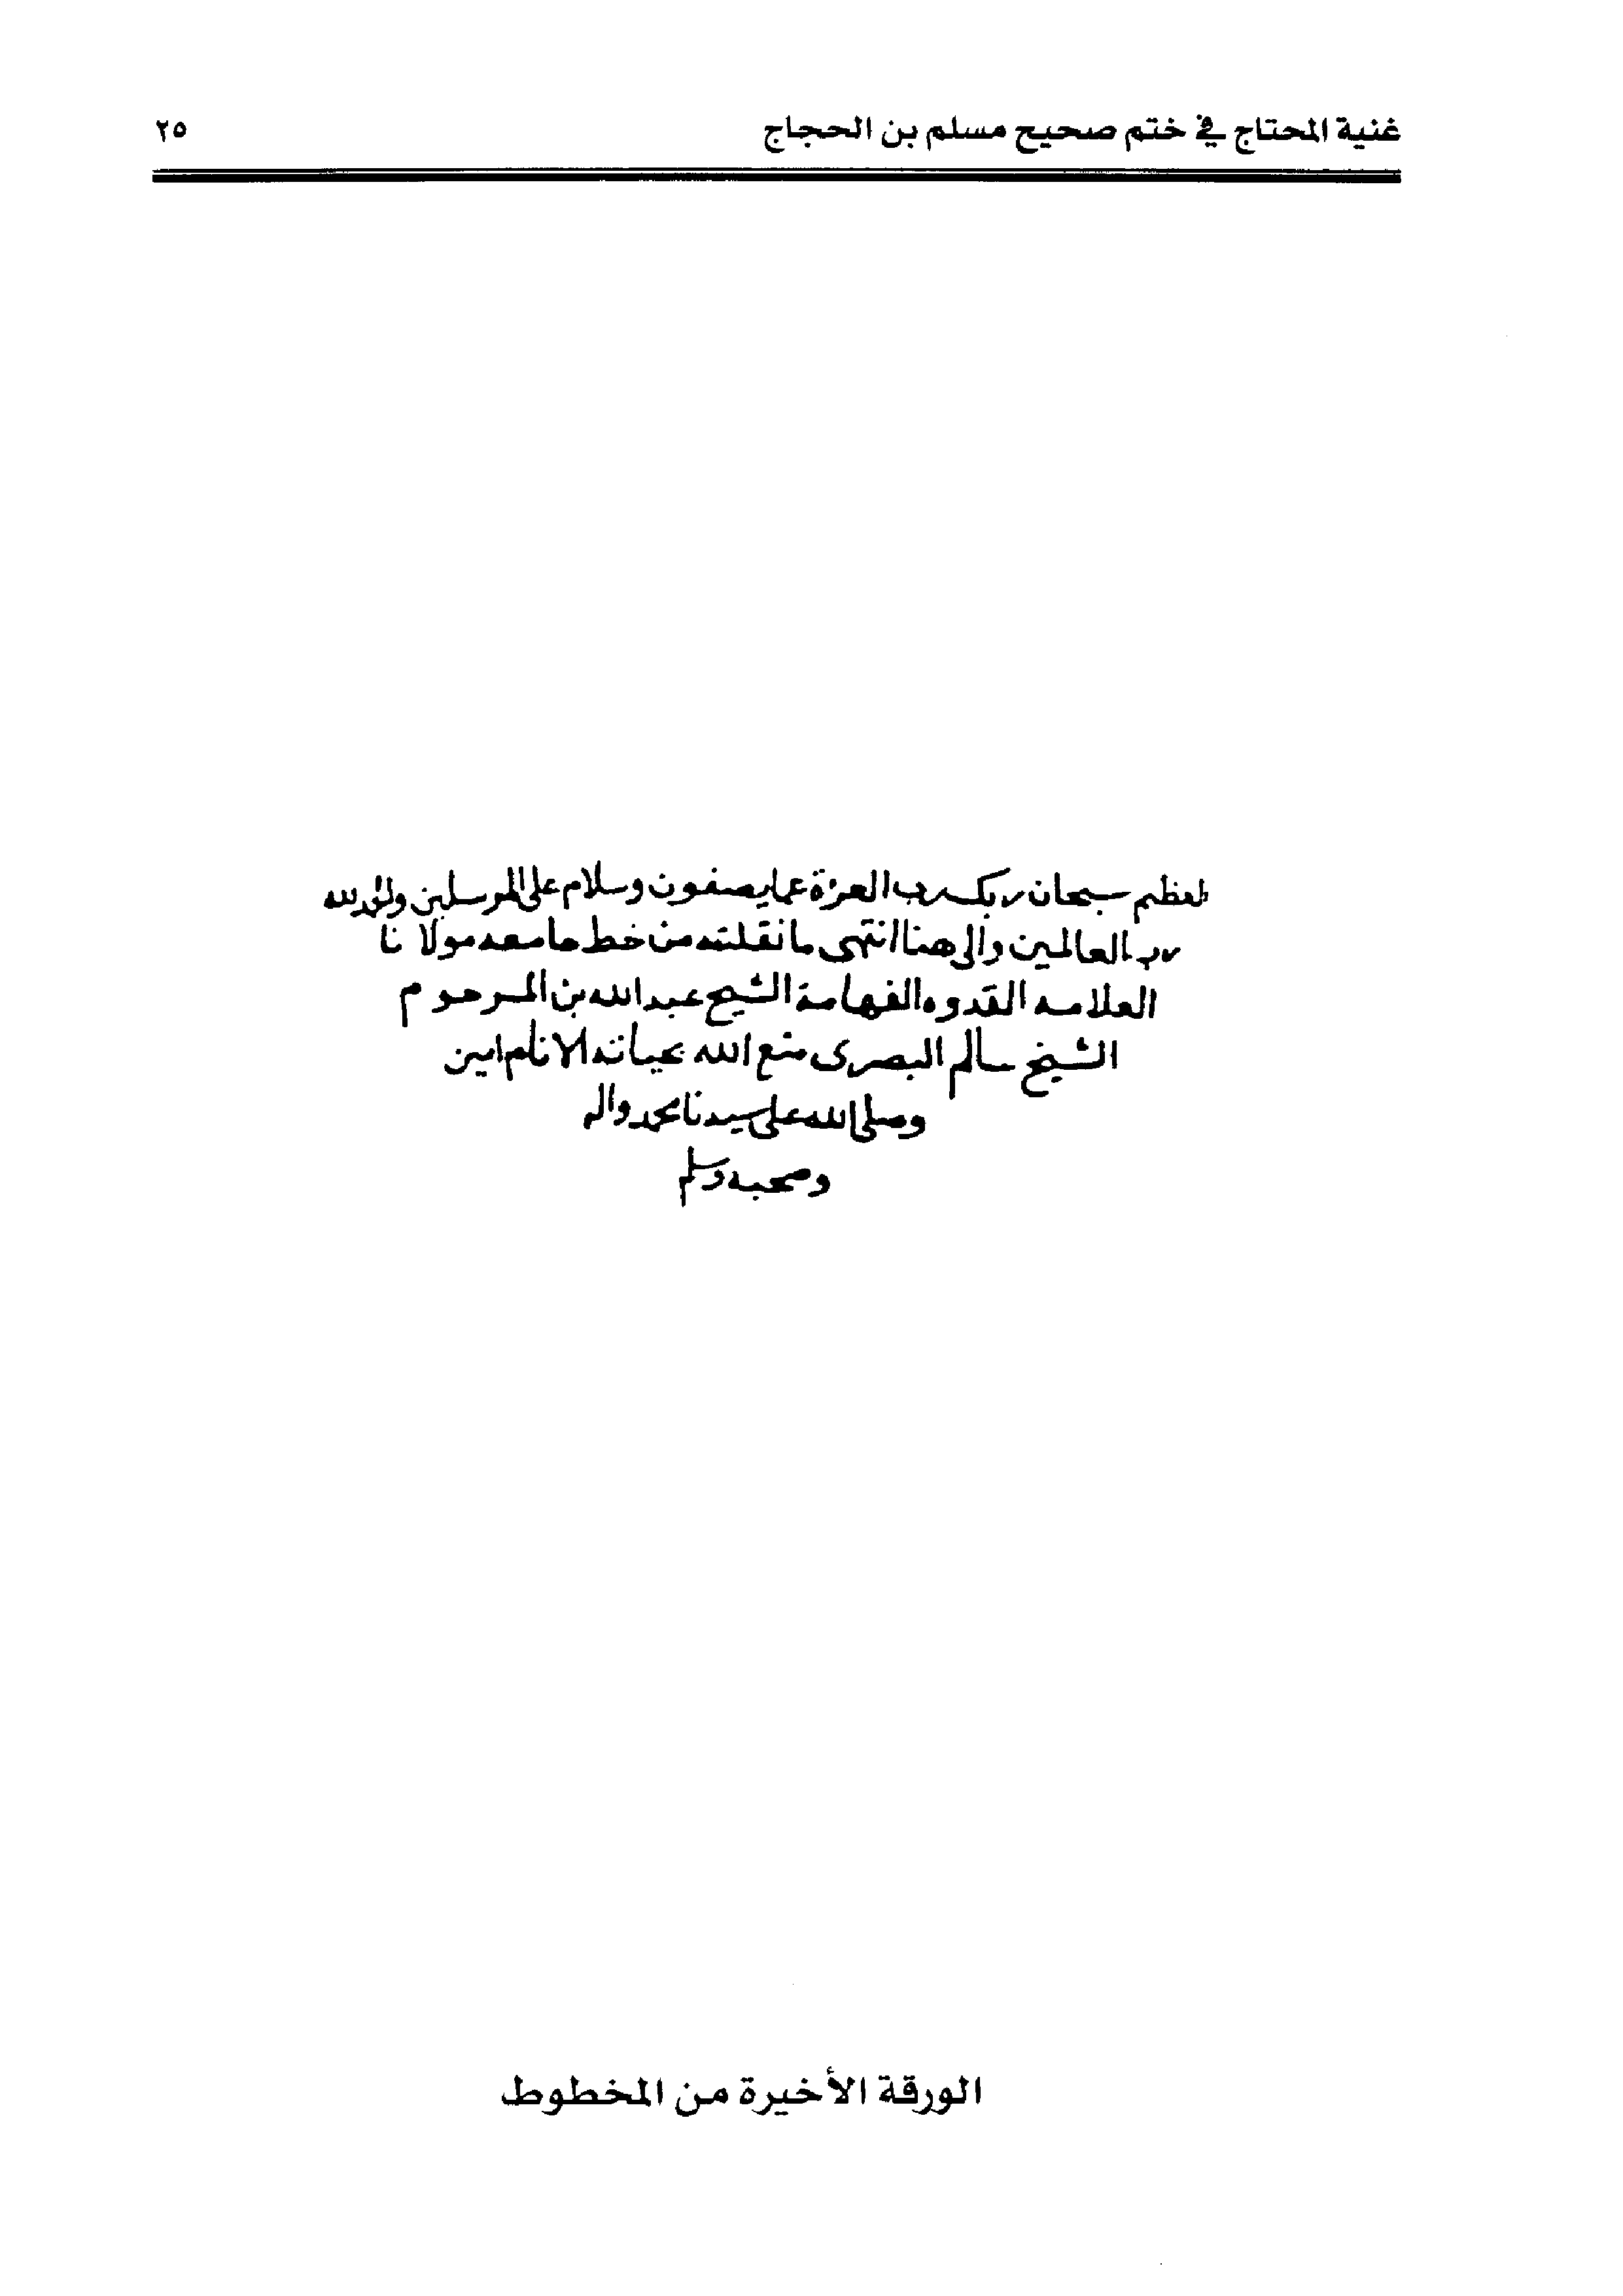 غنية المحتاج في ختم صحيح مسلم بن الحجاج ٢٥
العظيم سبحان ربك رب العزة عما يصفون وسلام على المرسلين والحمد لله
رب العالمين والى هنا انتهى ما نقلته من خط جامعه مولانا
العلامه القدوه الفهامة الشيخ عبد الله بن المرحوم
الشيخ سالم البصرى متع الله بحياته الانام امين
وصلى الله على سيدنا محمد واله
وصحبه وسلم
الورقة الأخيرة من المخطوط